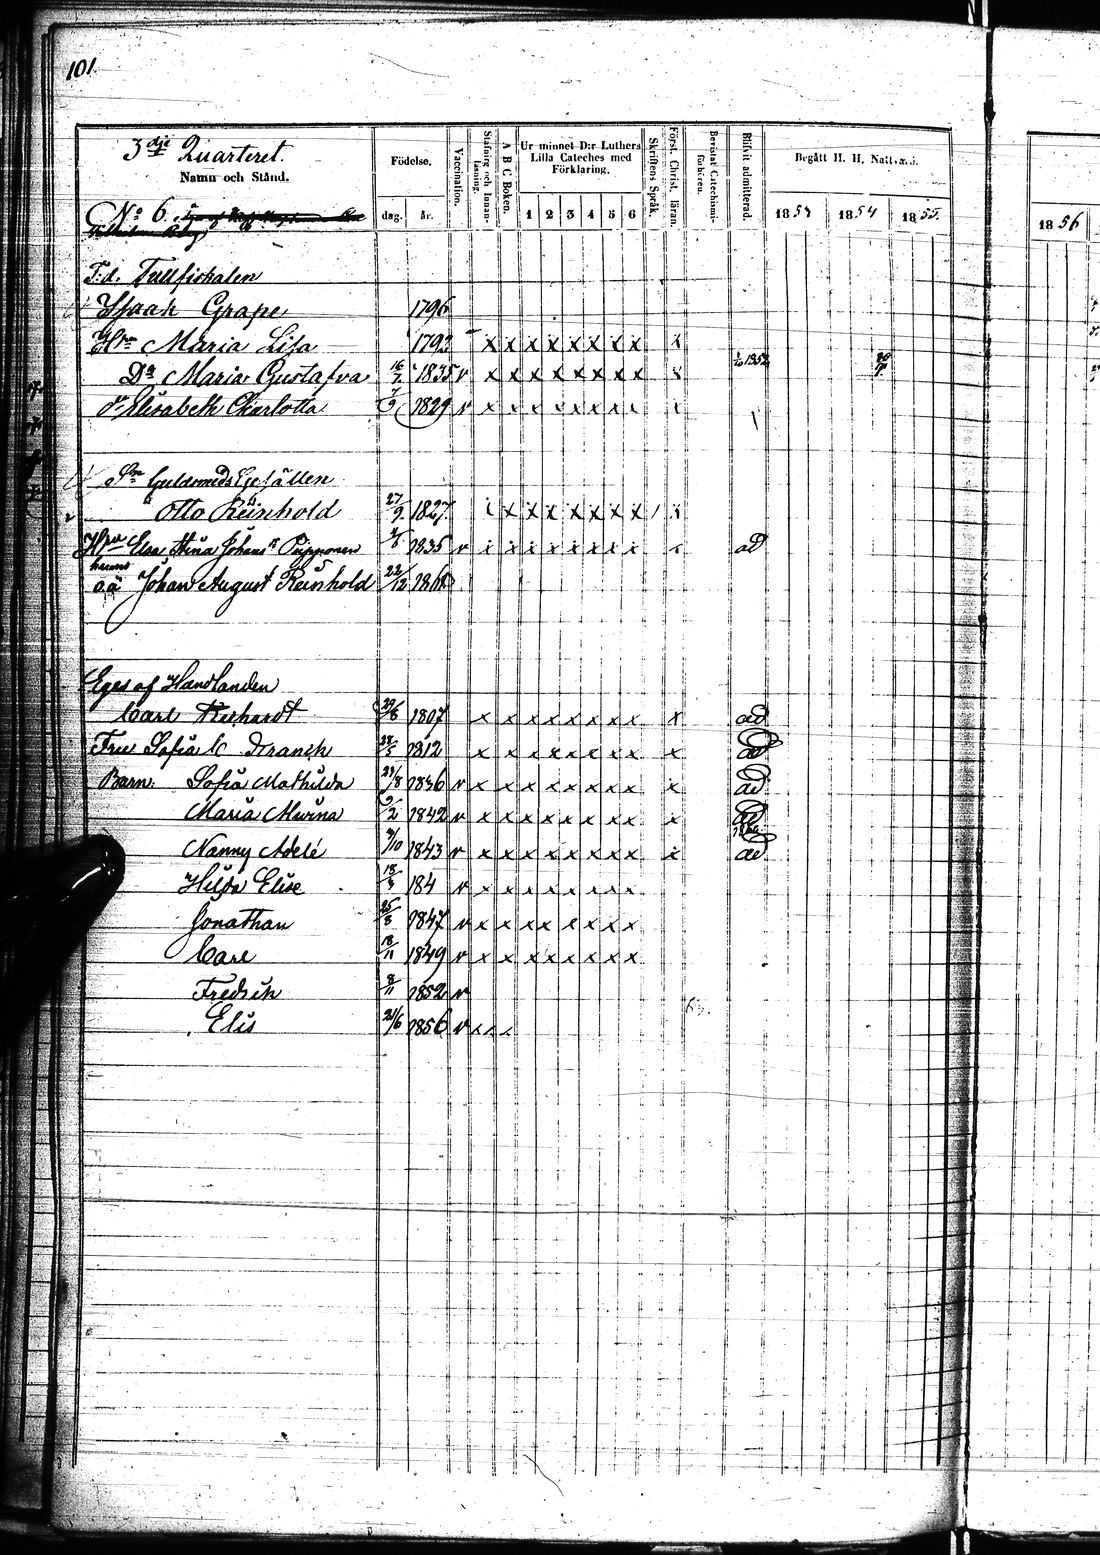 101.
3dje Quarteret.
Namn och Stånd.
Födelse.
dag. år.
Vaccination.
Stafning och Innan-läsning.
A B C Boken.
Ur minnet D:r Luthers
Lilla Cateches med
Förklaring.
1 2 3 4 5 6
Skriftens Språk.
Först. Christ. läran.
Bevistat Catechismi-förhören.
Blifvit admitterad.
Begått H. H. Nattvard.
1853 1854 1855.
1856
No 6.
T:d. Tullfiskalen
Isaak Grape 1796
Hru Maria Lisa 1792 x x x x x x x x x
Dr Maria Gustafva 16/7 1835 v x x x x x x x x x
Dr Elisabeth Charlotta 7/9 1829 v x x x x x x x x x
Sn Guldsmeds Gesällen
Otto Reinhold 27/9 1827. x x x x x x x x x
Hru Elsa Stina Johans Dr 1835 v x x x x x x x x x ad
hennes
o.ä Johan August Reinhold 22/12
Eges af Handlanden
Carl 29/6 1807 x x x x x x x x x ad
Fru Sofia C. 28/5 1812 x x x x x x x x x ad
Barn: Sofia Mathilda 1836 v x x x x x x x x x ad
Maria 9/2 1842 v x x x x x x x x x ad
Nanny Adele 9/10 1843 v x x x x x x x x x ad
Hilda Elise 184 v x x x x x x x x
Jonathan 25/8 1847 v x x x x x x x x
Carl 18/11 1849 v x x x x x x x x
Fredrik 8/11 1852 v
Elis 21/6 1856 v x x x